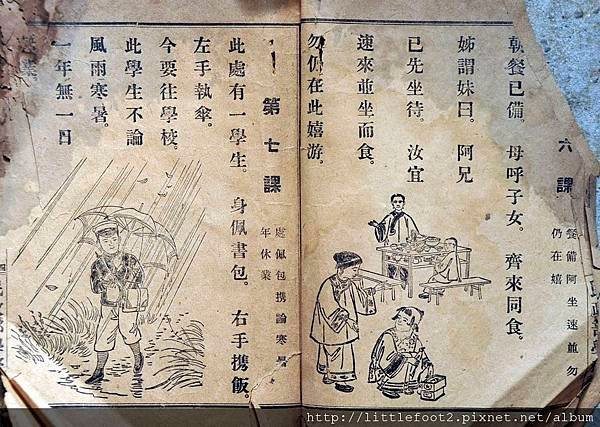 六課
餐備阿坐速並勿
仍在嬉
朝餐已備。 母呼子女。 齊來同食。
姊謂妹曰。 阿兄
已先坐待。 汝宜
速來並坐而食。
勿仍在此嬉游。
第七課
處佩包携論寒暑
年休業
此處有一學生。 身佩書包。 右手携飯。
左手執傘。
今要往學校。
此學生不論
風雨寒暑。
一年無一日
業
四
http://littlefoot2.pixnet.net/album